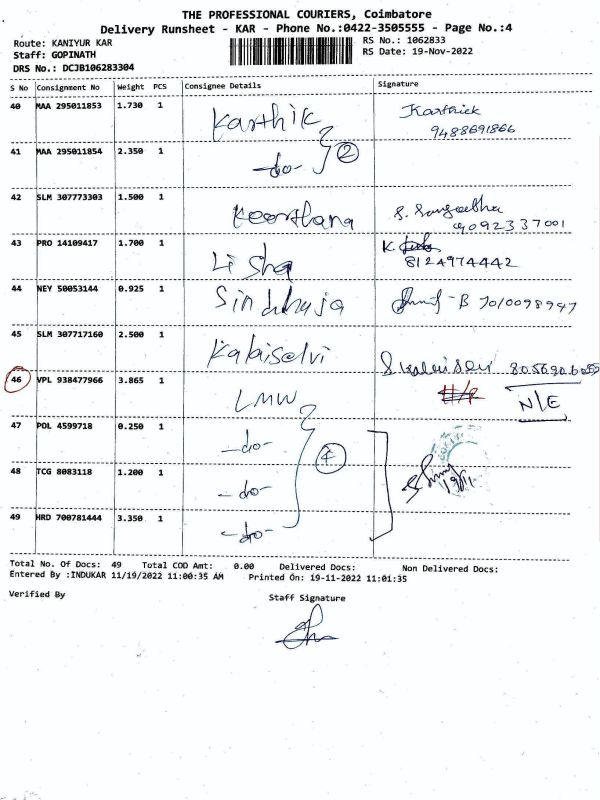 THE PROFESSIONAL COURIERS, Coimbatore
Delivery Runsheet - KAR - Phone No.:0422-3505555 - Page No.:4
Route: KANIYUR KAR RS No.: 1062833
Staff: GOPINATH RS Date: 19-Nov-2022
DRS No.: DCJB106283304
S No Consignment No Weight PCS Consignee Details Signature
40 MAA 295011853 1.730 1 Karthik Karthick
9488691866
41 MAA 295011854 2.350 1 -do- 2
42 SLM 307773303 1.500 1 Keerthana S. Sangeetha
9092337001
43 PRO 14109417 1.700 1 Li sha K.
8124974442
44 NEY 50053144 0.925 1 Sindhuja -B 7010098947
45 SLM 307717160 2.500 1 Kalaiselvi
46 VPL 938477966 3.865 1 LMW N/E
47 POL 4599718 0.250 1 -do-
48 TCG 8083118 1.200 1 -do- 4
49 HRD 700781444 3.350 1 -do-
Total No. Of Docs: 49 Total COD Amt: 0.00 Delivered Docs: Non Delivered Docs:
Entered By :INDUKAR 11/19/2022 11:00:35 AM Printed On: 19-11-2022 11:01:35
Verified By Staff Signature